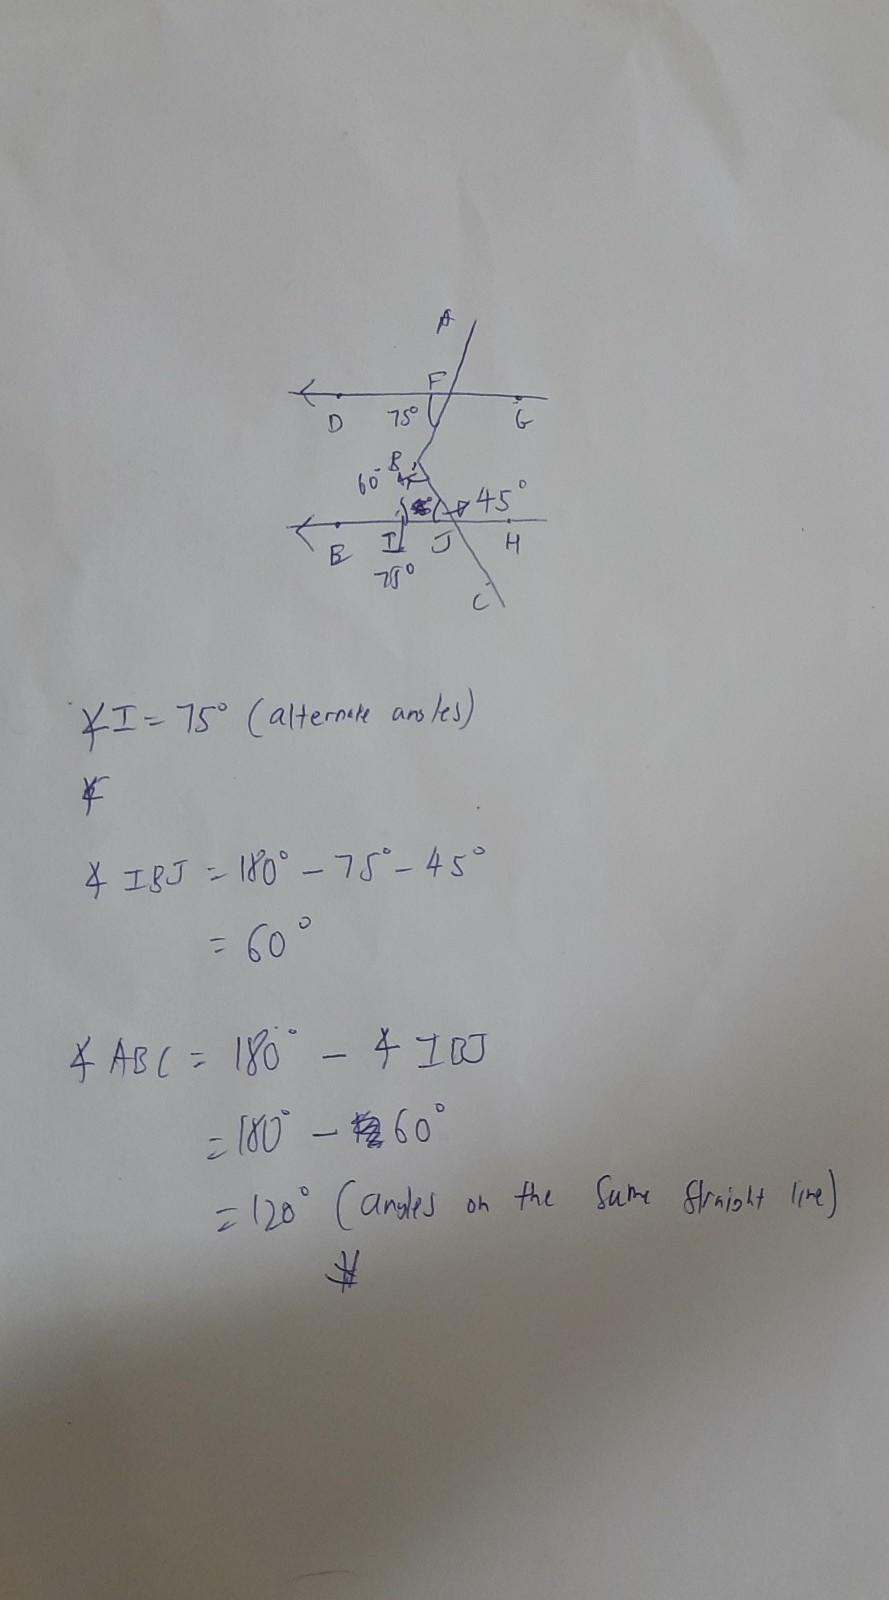 A
F
D
75°
G
B
60°
45°
E
I
J
H
75°
C
∡I = 75° (alternate angles)
∡
∡ IBJ = 180° - 75° - 45°
= 60°
∡ ABC = 180° - ∡ IBJ
= 180° - 60°
= 120° (angles on the same straight line)